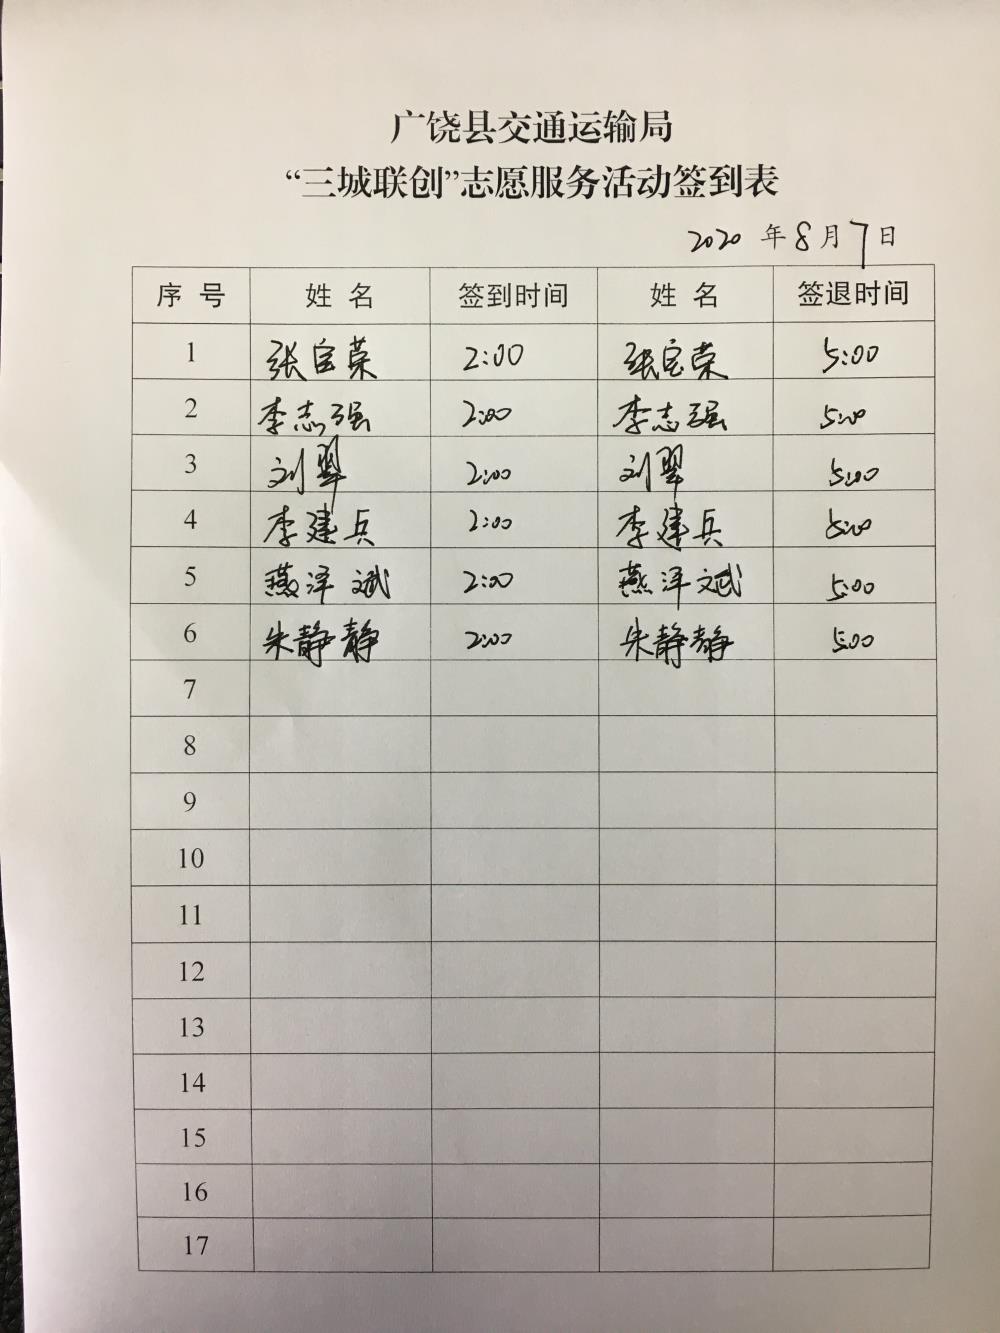 广饶县交通运输局
“三城联创”志愿服务活动签到表
2020 年 8 月 7 日
序 号 姓 名 签到时间 姓 名 签退时间
1 张宝荣 2:00 张宝荣 5:00
2 李志强 2:00 李志强 5:00
3 刘翠 2:00 刘翠 5:00
4 李建兵 2:00 李建兵 5:00
5 燕泽斌 2:00 燕泽斌 5:00
6 朱静静 2:00 朱静静 5:00
7
8
9
10
11
12
13
14
15
16
17